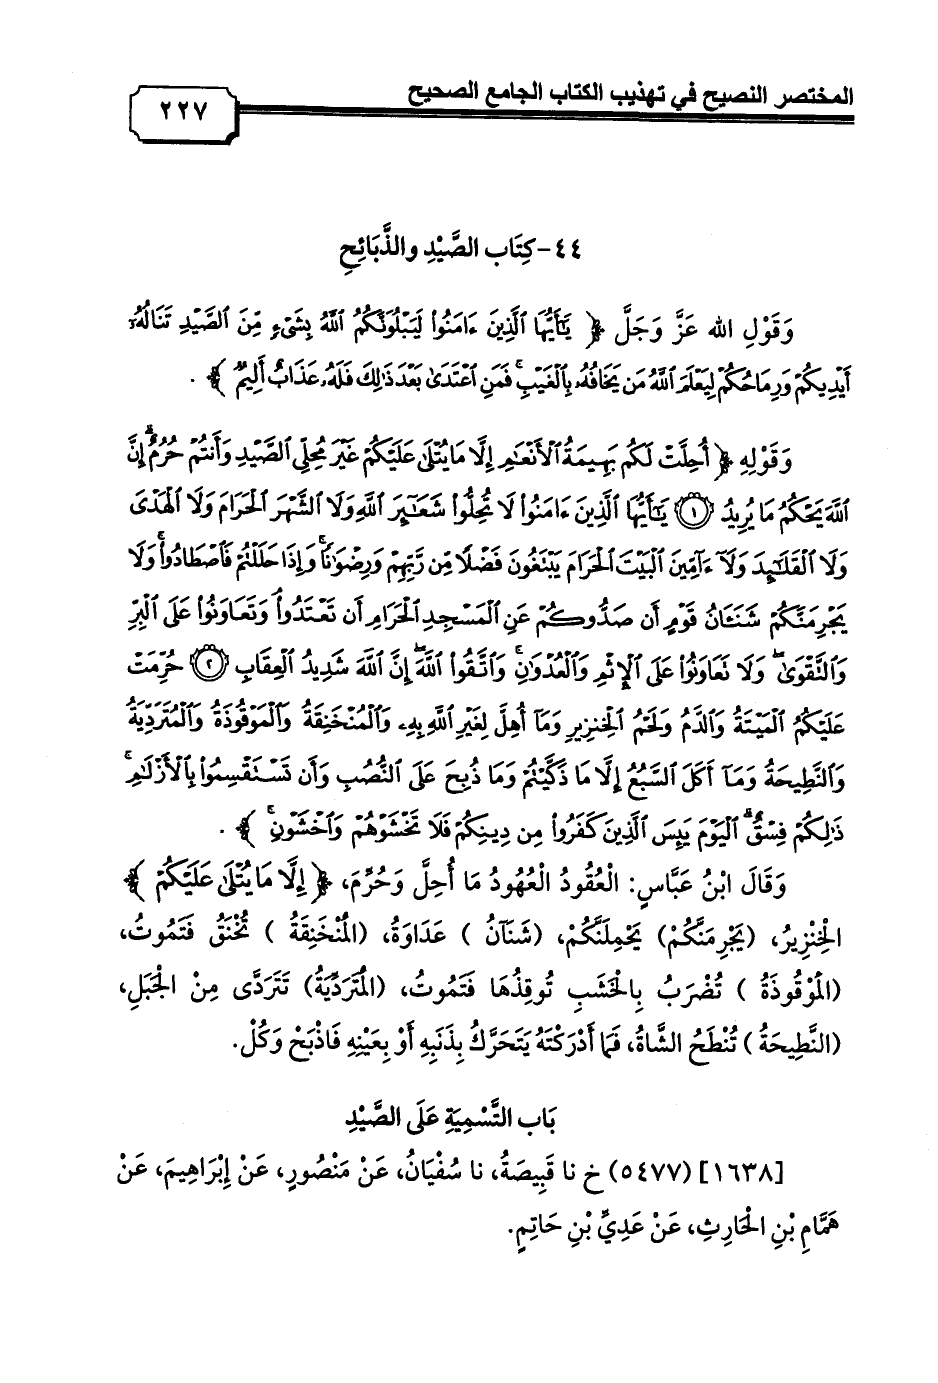 المختصر النصيح في تهذيب الكتاب الجامع الصحيح
٢٢٧
٤٤- كِتَاب الصَّيْدِ والذَّبَائِحِ
وَقَوْلِ الله عَزَّ وَجَلَّ ﴿ يَٰٓأَيُّهَا ٱلَّذِينَ ءَامَنُوا۟ لَيَبْلُوَنَّكُمُ ٱللَّهُ بِشَىْءٍ مِّنَ ٱلصَّيْدِ تَنَالُهُۥٓ
أَيْدِيكُمْ وَرِمَاحُكُمْ لِيَعْلَمَ ٱللَّهُ مَن يَخَافُهُۥ بِٱلْغَيْبِ ۚ فَمَنِ ٱعْتَدَىٰ بَعْدَ ذَٰلِكَ فَلَهُۥ عَذَابٌ أَلِيمٌ ﴾ .
وَقَوْلِهِ ﴿ أُحِلَّتْ لَكُم بَهِيمَةُ ٱلْأَنْعَٰمِ إِلَّا مَا يُتْلَىٰ عَلَيْكُمْ غَيْرَ مُحِلِّى ٱلصَّيْدِ وَأَنتُمْ حُرُمٌ ۗ إِنَّ
ٱللَّهَ يَحْكُمُ مَا يُرِيدُ ۝١ يَٰٓأَيُّهَا ٱلَّذِينَ ءَامَنُوا۟ لَا تُحِلُّوا۟ شَعَٰٓئِرَ ٱللَّهِ وَلَا ٱلشَّهْرَ ٱلْحَرَامَ وَلَا ٱلْهَدْىَ
وَلَا ٱلْقَلَٰٓئِدَ وَلَآ ءَآمِّينَ ٱلْبَيْتَ ٱلْحَرَامَ يَبْتَغُونَ فَضْلًا مِّن رَّبِّهِمْ وَرِضْوَٰنًا ۚ وَإِذَا حَلَلْتُمْ فَٱصْطَادُوا۟ ۚ وَلَا
يَجْرِمَنَّكُمْ شَنَـَٔانُ قَوْمٍ أَن صَدُّوكُمْ عَنِ ٱلْمَسْجِدِ ٱلْحَرَامِ أَن تَعْتَدُوا۟ ۘ وَتَعَاوَنُوا۟ عَلَى ٱلْبِرِّ
وَٱلتَّقْوَىٰ ۖ وَلَا تَعَاوَنُوا۟ عَلَى ٱلْإِثْمِ وَٱلْعُدْوَٰنِ ۚ وَٱتَّقُوا۟ ٱللَّهَ ۖ إِنَّ ٱللَّهَ شَدِيدُ ٱلْعِقَابِ ۝٢ حُرِّمَتْ
عَلَيْكُمُ ٱلْمَيْتَةُ وَٱلدَّمُ وَلَحْمُ ٱلْخِنزِيرِ وَمَآ أُهِلَّ لِغَيْرِ ٱللَّهِ بِهِۦ وَٱلْمُنْخَنِقَةُ وَٱلْمَوْقُوذَةُ وَٱلْمُتَرَدِّيَةُ
وَٱلنَّطِيحَةُ وَمَآ أَكَلَ ٱلسَّبُعُ إِلَّا مَا ذَكَّيْتُمْ وَمَا ذُبِحَ عَلَى ٱلنُّصُبِ وَأَن تَسْتَقْسِمُوا۟ بِٱلْأَزْلَٰمِ ۚ
ذَٰلِكُمْ فِسْقٌ ۗ ٱلْيَوْمَ يَئِسَ ٱلَّذِينَ كَفَرُوا۟ مِن دِينِكُمْ فَلَا تَخْشَوْهُمْ وَٱخْشَوْنِ ۚ ﴾ .
وَقَالَ ابْنُ عَبَّاسٍ: الْعُقُودُ الْعُهُودُ مَا أُحِلَّ وَحُرِّمَ، ﴿ إِلَّا مَا يُتْلَىٰ عَلَيْكُمْ ﴾
الْخِنْزِيرُ، (يَجْرِمَنَّكُمْ) يَحْمِلَنَّكُمْ، (شَنَآنُ ) عَدَاوَةُ، (الْمُنْخَنِقَةُ ) تُخْنَقُ فَتَمُوتُ،
(الْمَوْقُوذَةُ ) تُضْرَبُ بِالْخَشَبِ تُوقِذُهَا فَتَمُوتُ، (الْمُتَرَدِّيَةُ) تَتَرَدَّى مِنْ الْجَبَلِ،
(النَّطِيحَةُ ) تُنْطَحُ الشَّاةُ، فَمَا أَدْرَكْتَهُ يَتَحَرَّكُ بِذَنَبِهِ أَوْ بِعَيْنِهِ فَاذْبَحْ وَكُلْ.
بَاب التَّسْمِيَةِ عَلَى الصَّيْدِ
[١٦٣٨] (٥٤٧٧) خ نا قَبِيصَةُ، نا سُفْيَانُ، عَنْ مَنْصُورٍ، عَنْ إِبْرَاهِيمَ، عَنْ
هَمَّامِ بْنِ الْحَارِثِ، عَنْ عَدِيِّ بْنِ حَاتِمٍ.